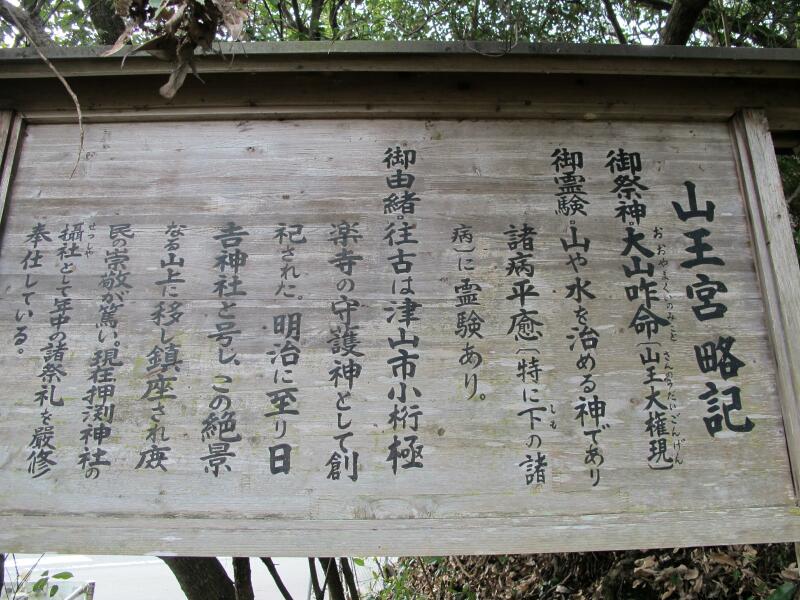 山王宮 略記
御祭神。大山咋命(山王大権現)
おおやまくいのみこと さんのうだいごんげん
御霊験。山や水を治める神であり
諸病平癒(特に下の諸
しも
病)に霊験あり。
御由緒。往古は津山市小桁極
楽寺の守護神として創
祀された。明治に至り日
吉神社と号し、この絶景
なる山上に移し鎮座され庶
民の崇敬が篤い。現在押渕神社の
摂社として年中の諸祭礼を厳修
せっしゃ
奉仕している。